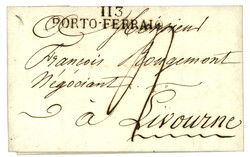 113
PORTO-FERRAIO
Monsieur
François Rougemont
Négociant
à Livourne